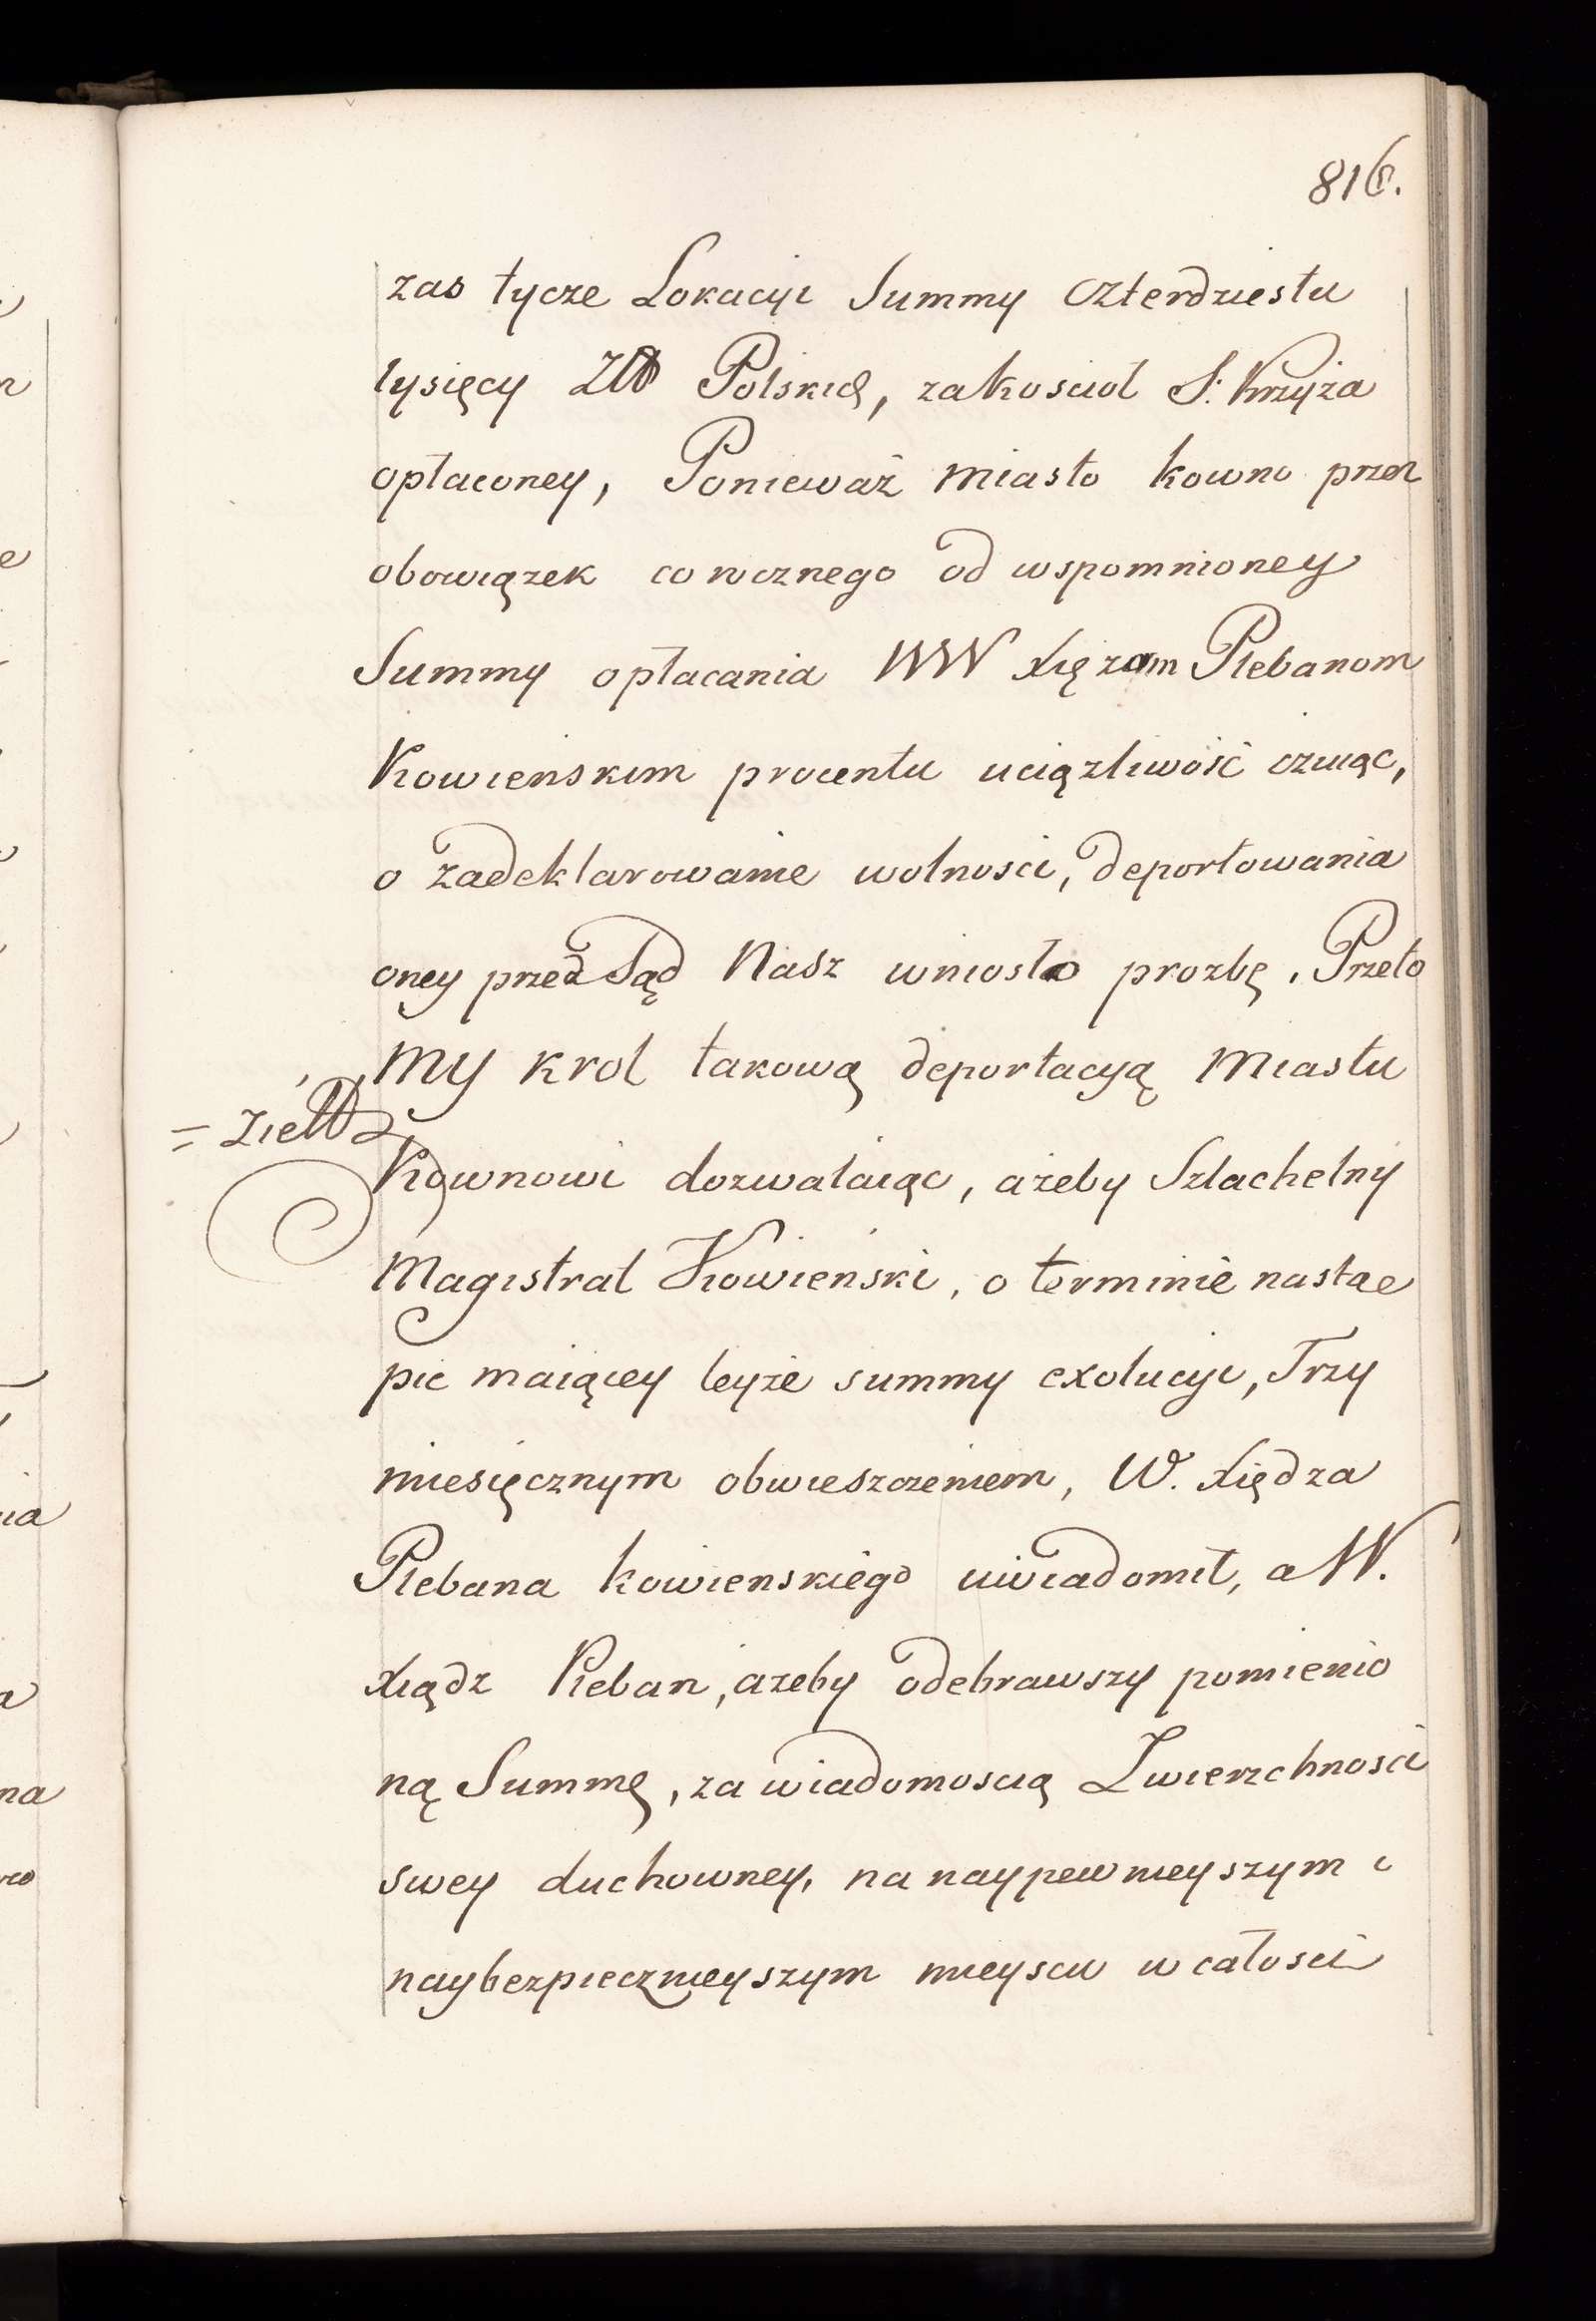 816.
zas tycze Lokacyi Summy czterdziestu
tysięcy Złł Polskich, zakosciol S: Krzyża
opłaconey, Ponieważ Miasto kowno przez
obowiązek corocznego od wspomnioney
Summy opłacania WW Xięzom Plebanom
Kowieńskim procentu uciązliwość czuiąc,
o zadeklarowanie wolnosci, deportowania
oney przed Sąd Nasz wniosło prozbę. Przeto
My krol takową deportacyą Miastu
Kownowi dozwalaiąc, ażeby Szlachetny
Magistrat Kowieński, o terminie nastąe
pic maiącey teyże summy exolucyi, Trzy
miesięcznym obwieszczeniem, W. Xiędza
Plebana kowienskiego uwiadomił, a W.
Xiądz Pleban, azeby odebrawszy pomienio
ną Summę, za wiadomoscią Zwierzchnosci
swey duchowney, na naypewnieyszym i
naybezpiecznieyszym mieyscu w całosci